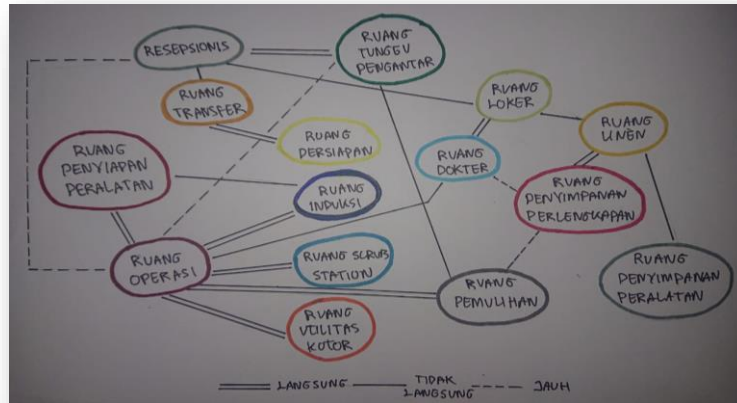 RESEPSIONIS
RUANG
TUNGGU
PENGANTAR
RUANG
TRANSFER
RUANG
LOKER
RUANG
LINEN
RUANG
PERSIAPAN
RUANG
PENYIAPAN
PERALATAN
RUANG
DOKTER
RUANG
INDUKSI
RUANG
PENYIMPANAN
PERLENGKAPAN
RUANG
OPERASI
RUANG SCRUB
STATION
RUANG
PEMULIHAN
RUANG
PENYIMPANAN
PERALATAN
RUANG
UTILITAS
KOTOR
LANGSUNG
TIDAK
LANGSUNG
JAUH